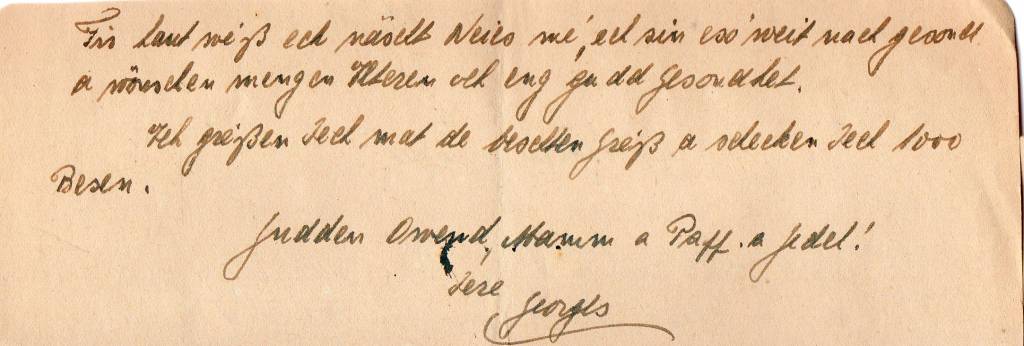 Fir haut weiß ech näscht Neies mé, ech sin esó weit nach gesond
a wönschen mengen Elteren och eng gudd Gesondhet.
Ech gréißen Iech mat de beschten Gréiß a schecken Iech 1000
Besen.
Gudden Owend, Mamm a Papp. a Jedel!
Iere
Georges